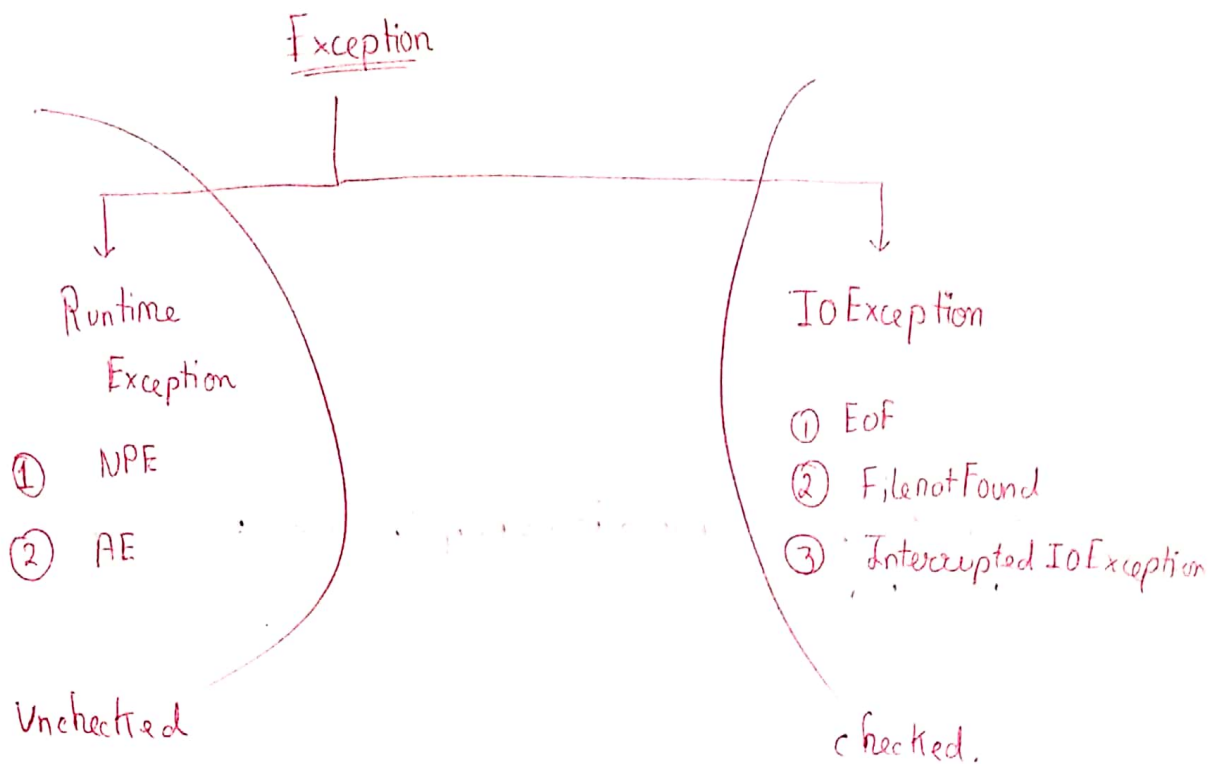 Exception
Runtime
Exception
① NPE
② AE
Unchecked
IOException
① EOF
② FilenotFound
③ Interrupted IOException
checked.